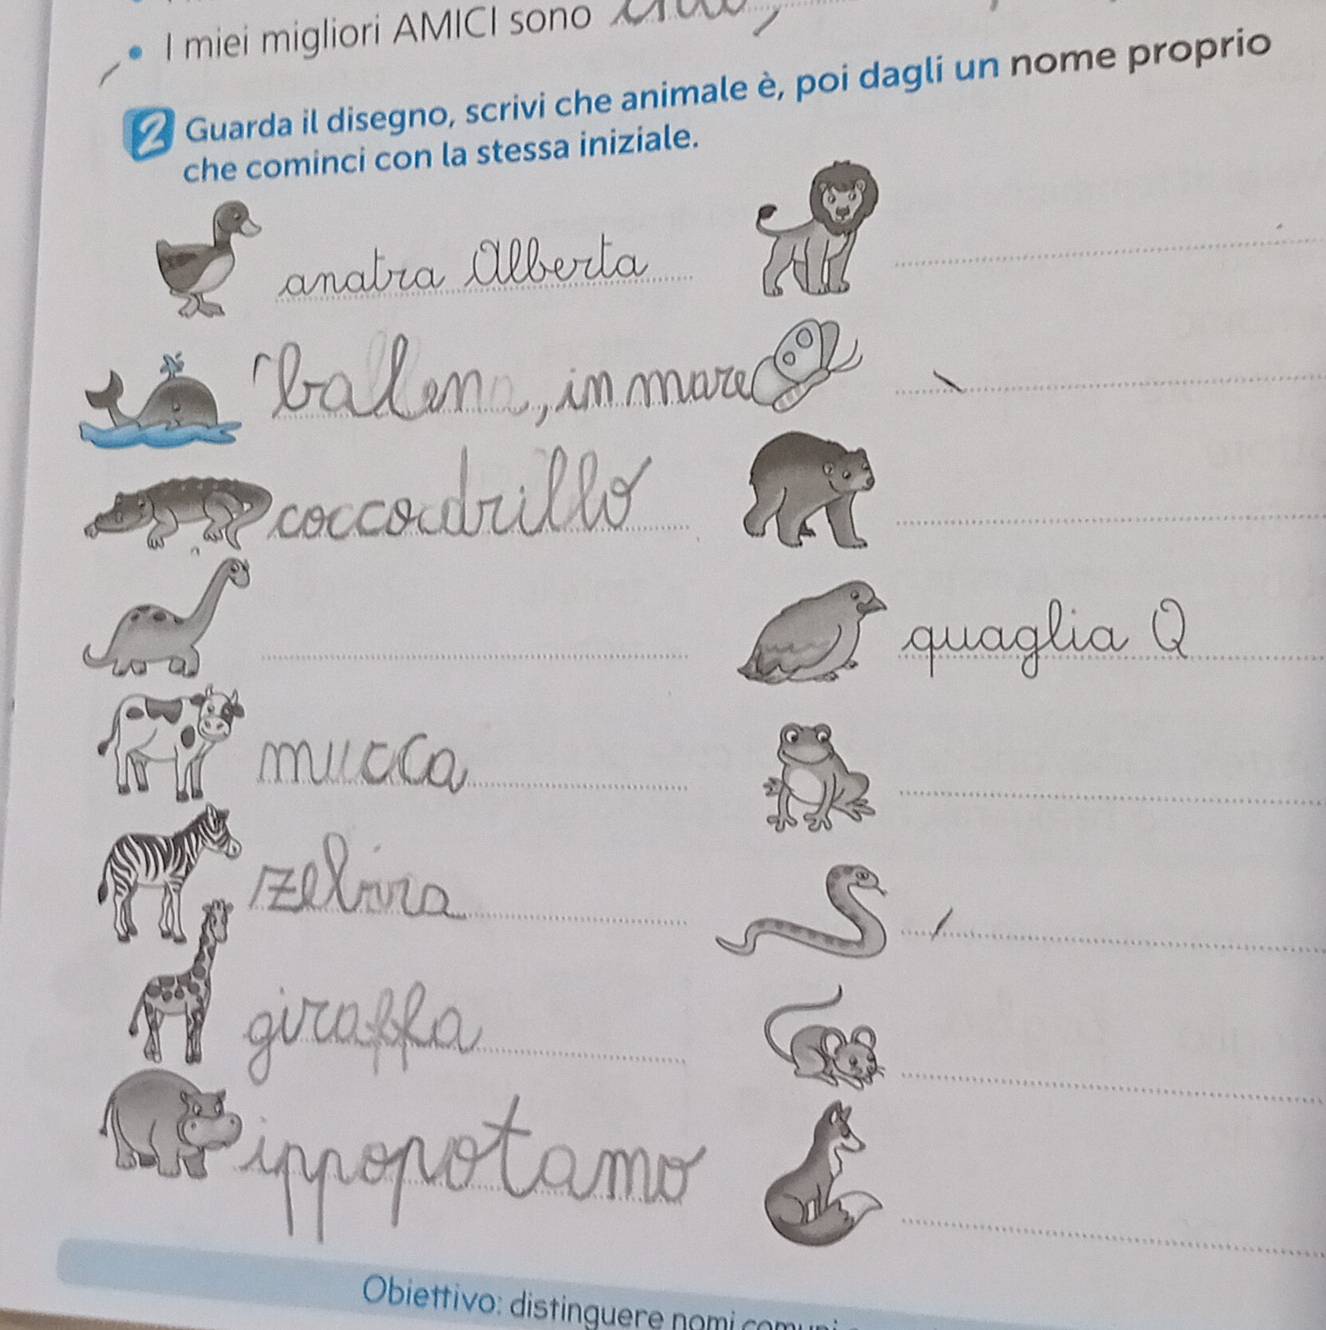 • I miei migliori AMICI sono
2 Guarda il disegno, scrivi che animale è, poi dagli un nome proprio
che cominci con la stessa iniziale.
anatra Alberta
balena, in mare
coccodrillo
quaglia Q
mucca
zebra
giraffa
ippopotamo
Obiettivo: distinguere nomi